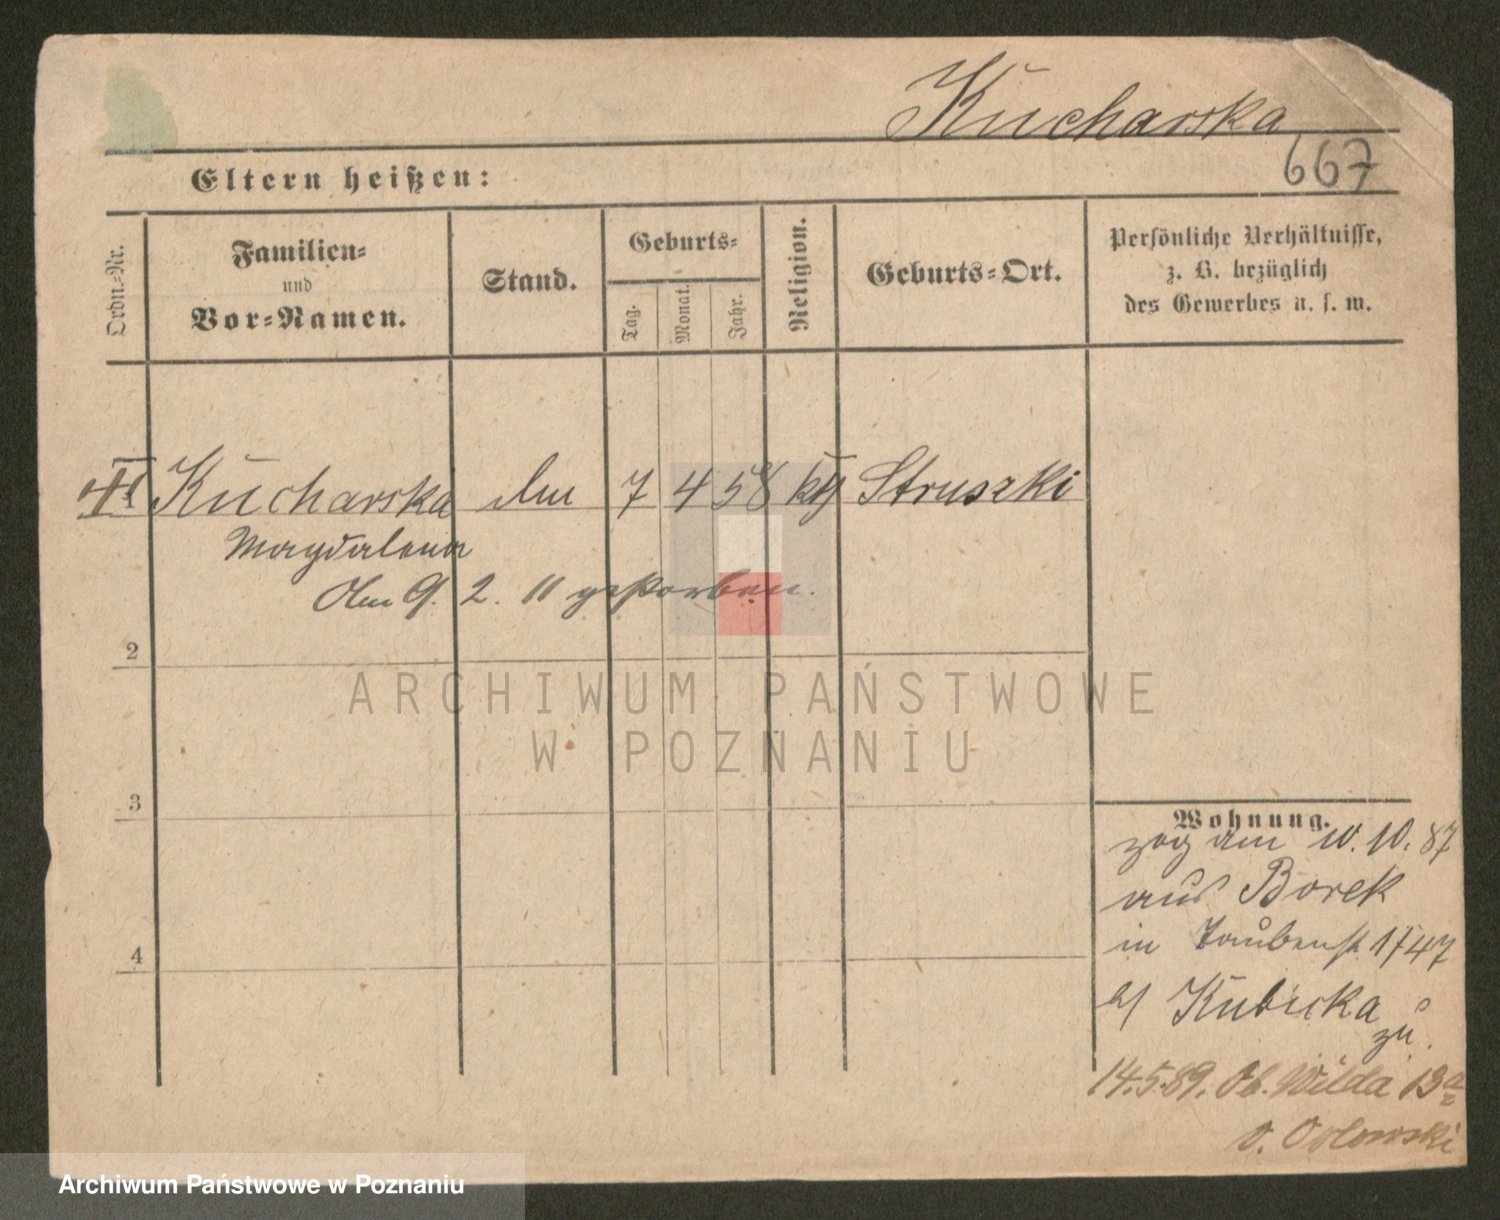 Kucharska
667
Eltern heißen:
Ordn.-Nr.
Familien-
und
Vor-Namen.
Stand.
Geburts-
Tag.
Monat.
Jahr.
Religion.
Geburts-Ort.
Persönliche Verhältnisse,
z. B. bezüglich
des Gewerbes u. s. w.
Kucharska 7 4 58 kth Struszki
Magdalena
Am 9. 2. 11 gestorben.
2
ARCHIWUM PAŃSTWOWE
W POZNANIU
3
4
Wohnung.
zog am 10. 10. 87
aus Borek
in Taubenst. 17/47
b/ Kubicka
zu.
14.5.89. Ob. Wilda 13a
b. Orlowski
Archiwum Państwowe w Poznaniu